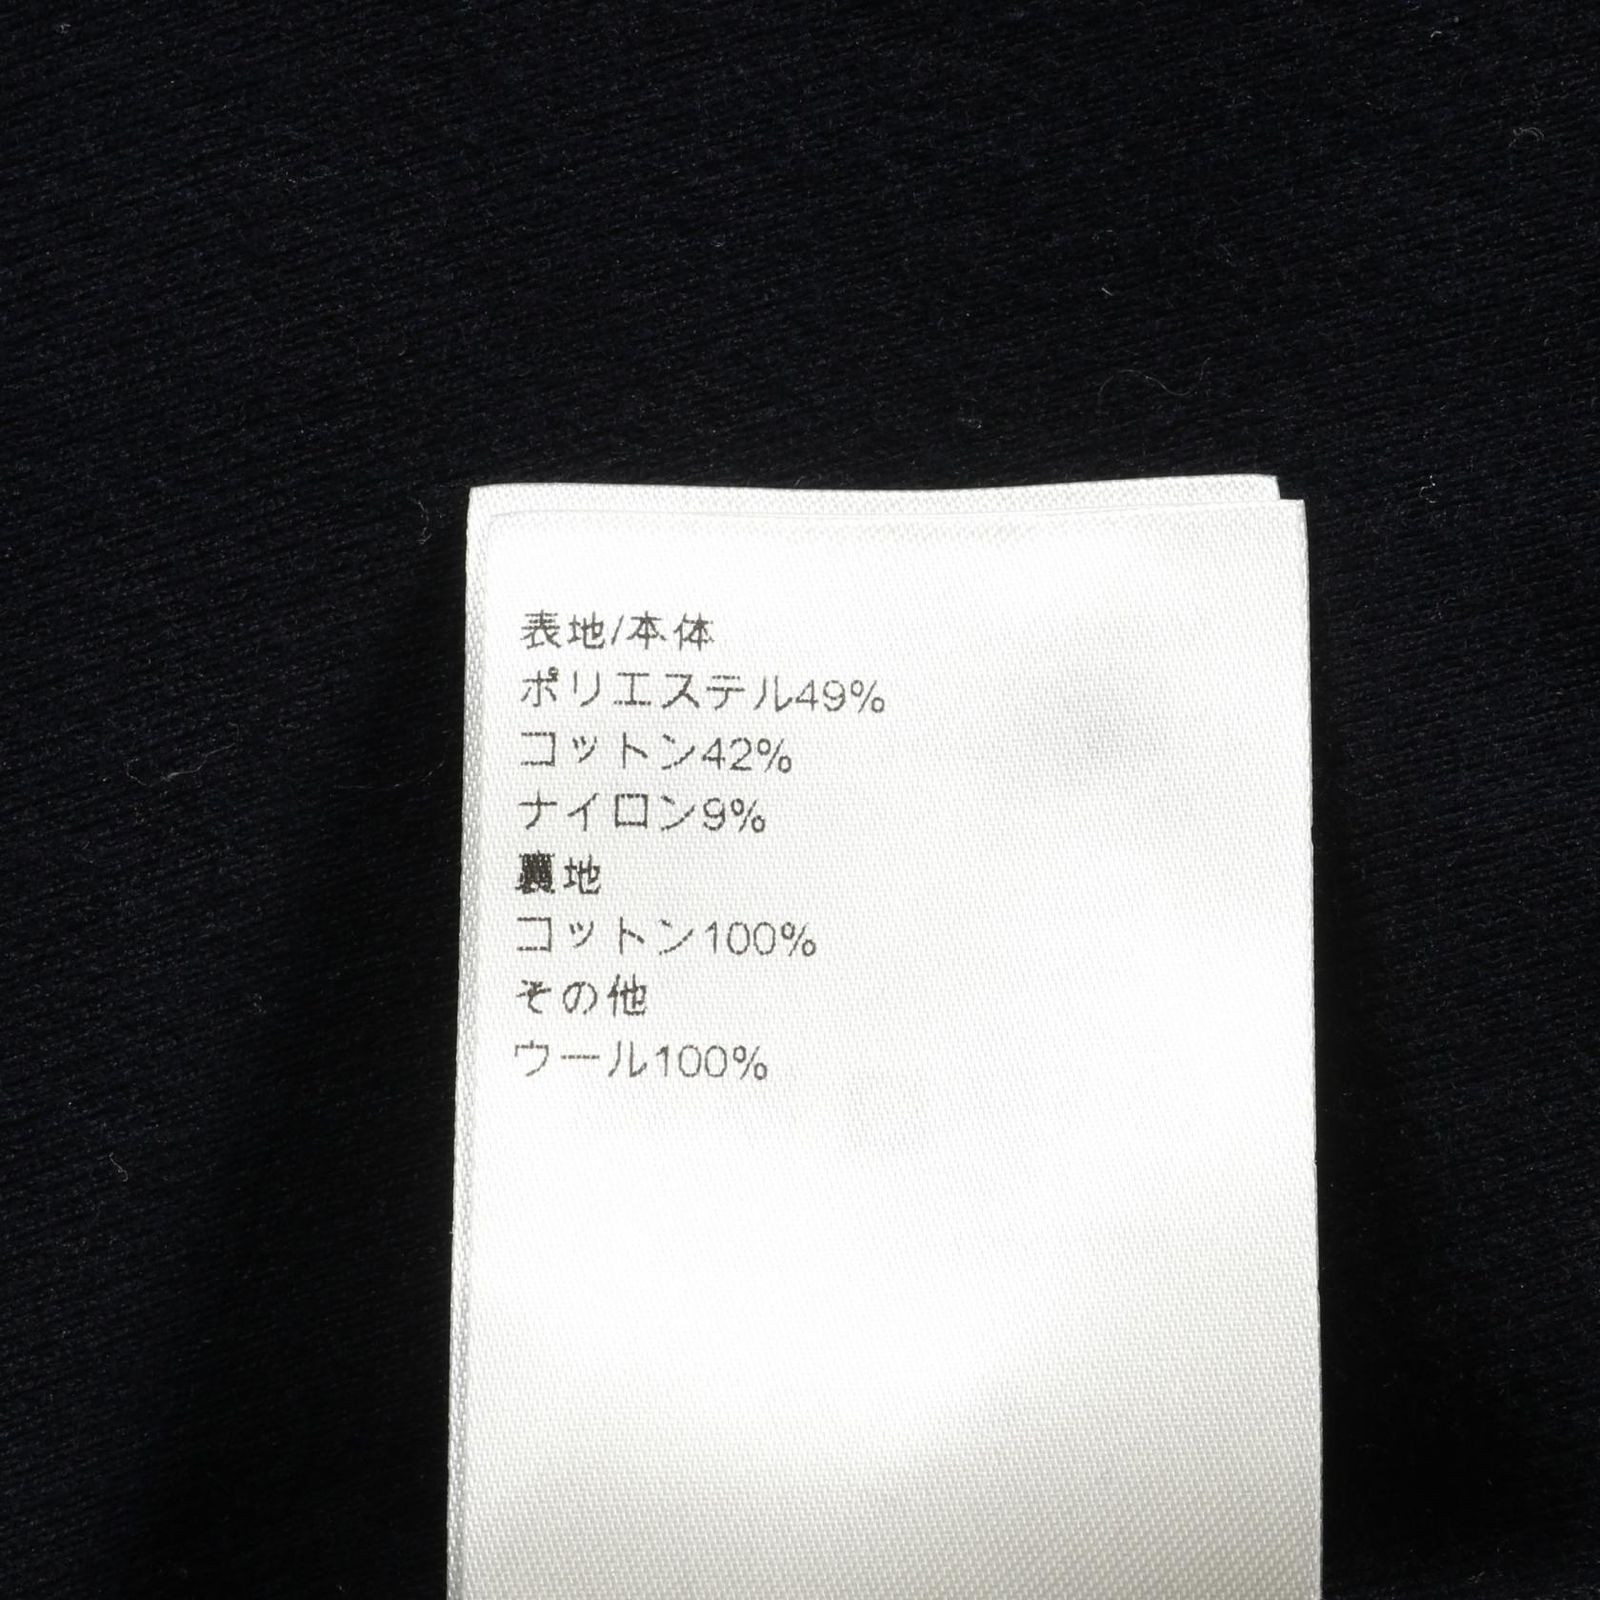 表地/本体
ポリエステル49%
コットン42%
ナイロン9%
裏地
コットン100%
その他
ウール100%